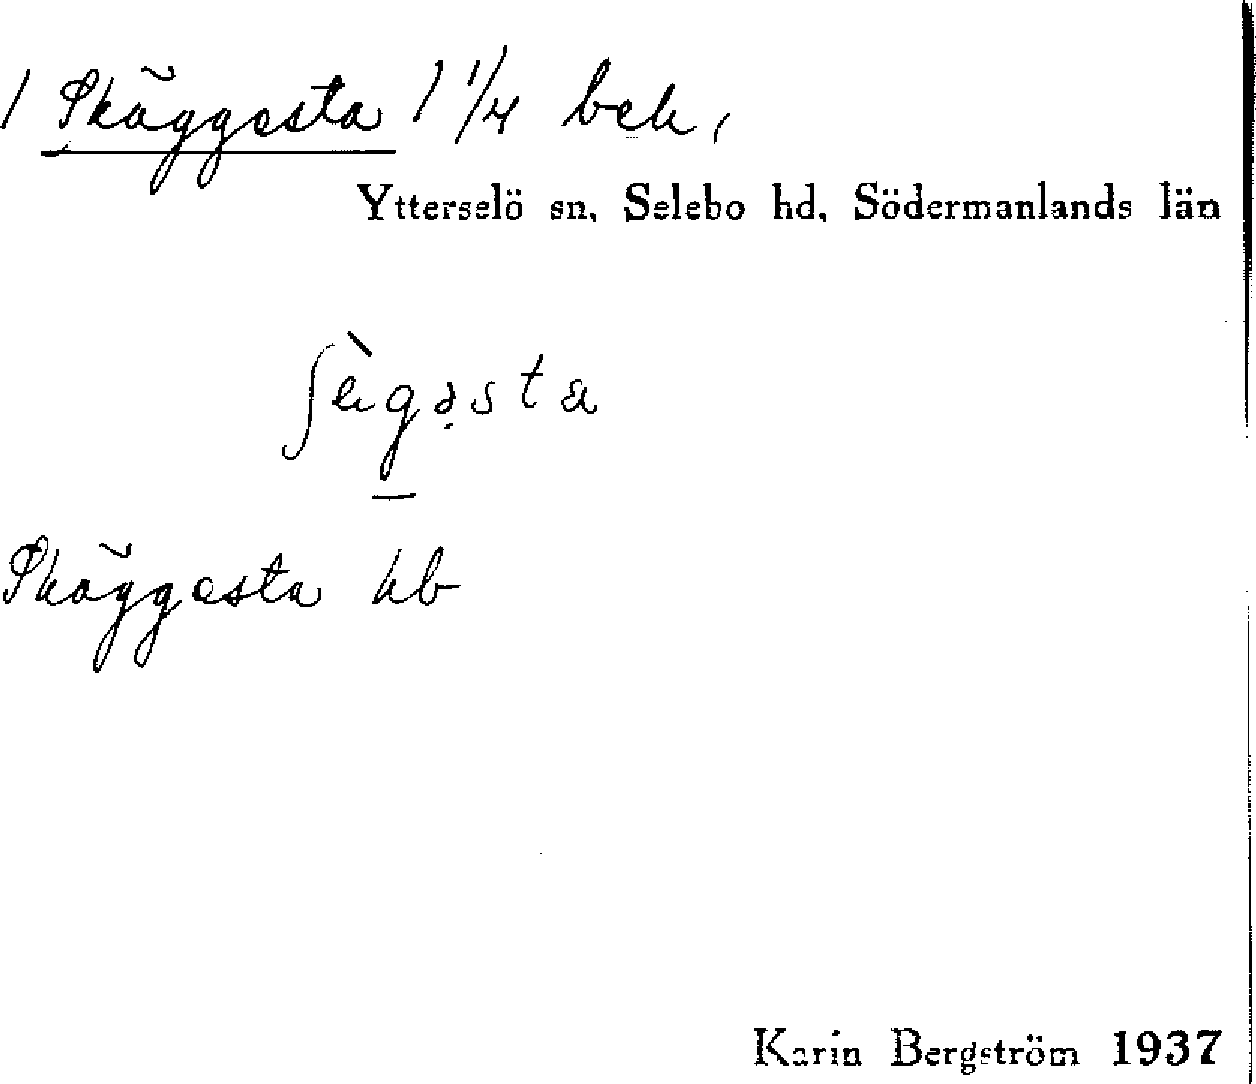 1 Skäggesta 1 1/4 bek,
Ytterselö sn, Selebo hd, Södermanlands län
ʃὲgə̣sta
Skäggesta kb
Karin Bergström 1937